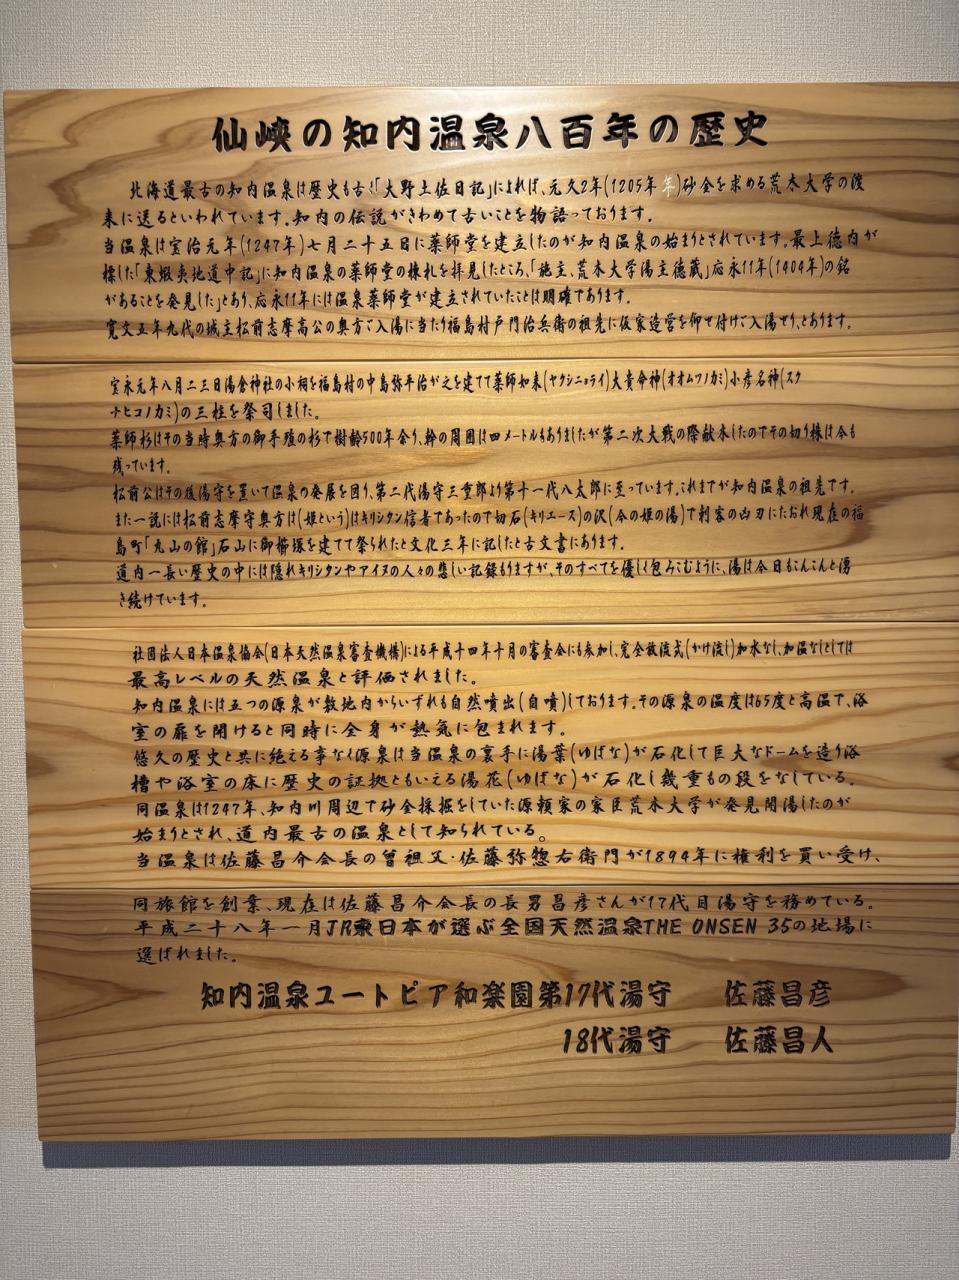 仙峡の知内温泉八百年の歴史
北海道最古の知内温泉は歴史も古く「大野土佐日記」によれば、元久2年(1205年 年)砂金を求める荒木大学の渡
来に送るといわれています。知内の伝説がきわめて古いことを物語っております。
当温泉は宝治元年(1247年)七月二十五日に薬師堂を建立したのが知内温泉の始まりとされています。最上徳内が
標した「東蝦夷地道中記」に知内温泉の薬師堂の棟札を拝見したところ、「施主、荒木大学湯主徳蔵」応永11年(1404年)の銘
があることを発見した」とあり、応永11年には温泉薬師堂が建立されていたことは明確であります。
寛文五年九代の城主松前志摩高公の奥方ご入湯に当たり福島村戸門治兵衛の祖先に仮家造営を仰せ付けご入湯せり、とあります。
宝永元年八月二三日湯倉神社の小祠を福島村の中島弥平治が之を建てて薬師如来(ヤクシニョライ)大貴命神(オオムツノカミ)小彦名神(スク
ナヒコノカミ)の三柱を祭司しました。
薬師杉はその当時奥方の御手殖の杉で樹齢500年余り、幹の周囲は四メートルもありましたが第二次大戦の際献木したのでその切り株は今も
残っています。
松前公はその後湯守を置いて温泉の発展を図り、第二代湯守三重郎より第十一代八太郎に至っています。これまでが知内温泉の祖先です。
また一説には松前志摩守奥方は(姫という)はキリシタン信者であったので切石(キリエース)の沢(今の姫の湯)で刺客の凶刃にたおれ現在の福
島町「丸山の館」石山に御櫛塚を建てて祭られたと文化三年に記したと古文書にあります。
道内一長い歴史の中には隠れキリシタンやアイヌの人々の悲しい記録もりますが、そのすべてを優しく包みこむように、湯は今日もこんこんと湧
き続けています。
社団法人日本温泉協会(日本天然温泉審査機構)による平成十四年十月の審査会にも参加し、完全放流式(かけ流し)加水なし、加温なしとしては
最高レベルの天然温泉と評価されました。
知内温泉には五つの源泉が敷地内からいずれも自然噴出(自噴)しております。その源泉の温度は65度と高温で、浴
室の扉を開けると同時に全身が熱気に包まれます。
悠久の歴史と共に絶える事なく源泉は当温泉の裏手に湯葉(ゆばな)が石化して巨大なドームを造り浴
槽や浴室の床に歴史の証拠ともいえる湯花(ゆばな)が石化し幾重もの段をなしている。
同温泉は1247年、知内川周辺で砂金採掘をしていた源頼家の家臣荒木大学が発見開湯したのが
始まりとされ、道内最古の温泉として知られている。
当温泉は佐藤昌介会長の曽祖父・佐藤弥惣右衛門が1894年に権利を買い受け、
同旅館を創業、現在は佐藤昌介会長の長男昌彦さんが17代目湯守を務めている。
平成二十八年一月JR東日本が選ぶ全国天然温泉THE ONSEN 35の地場に
選ばれました。
知内温泉ユートピア和楽園第17代湯守 佐藤昌彦
18代湯守 佐藤昌人